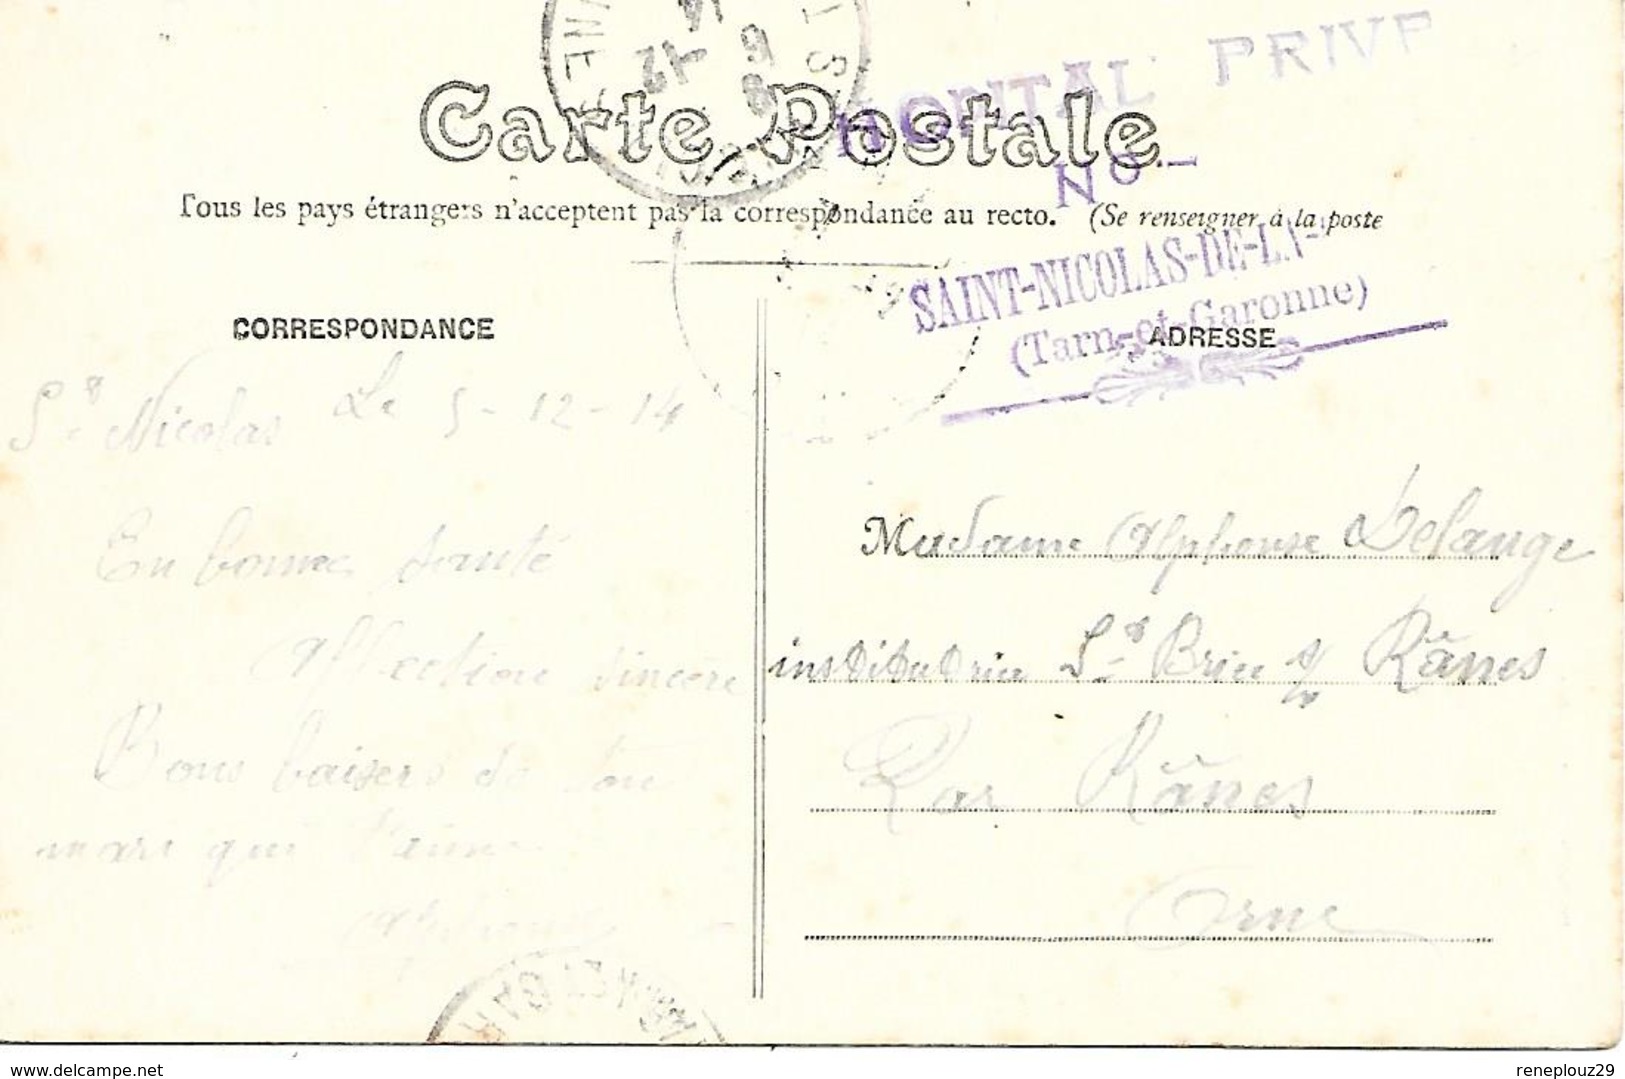 Carte Postale
HOPITAL PRIVE
No -
Tous les pays étrangers n'acceptent pas la correspondance au recto. (Se renseigner à la poste
SAINT-NICOLAS-DE-LA-
(Tarn-et-Garonne)
CORRESPONDANCE
ADRESSE
St Nicolas Le 5-12-14
En bonne santé
Affection sincère
Bons baisers de ton
mari qui t'aime
Alphonse
Madame Alphonse Delange
institutrice St Brice s/ Rânes
Par Rânes
Orne
delcampe.net
reneplouz29